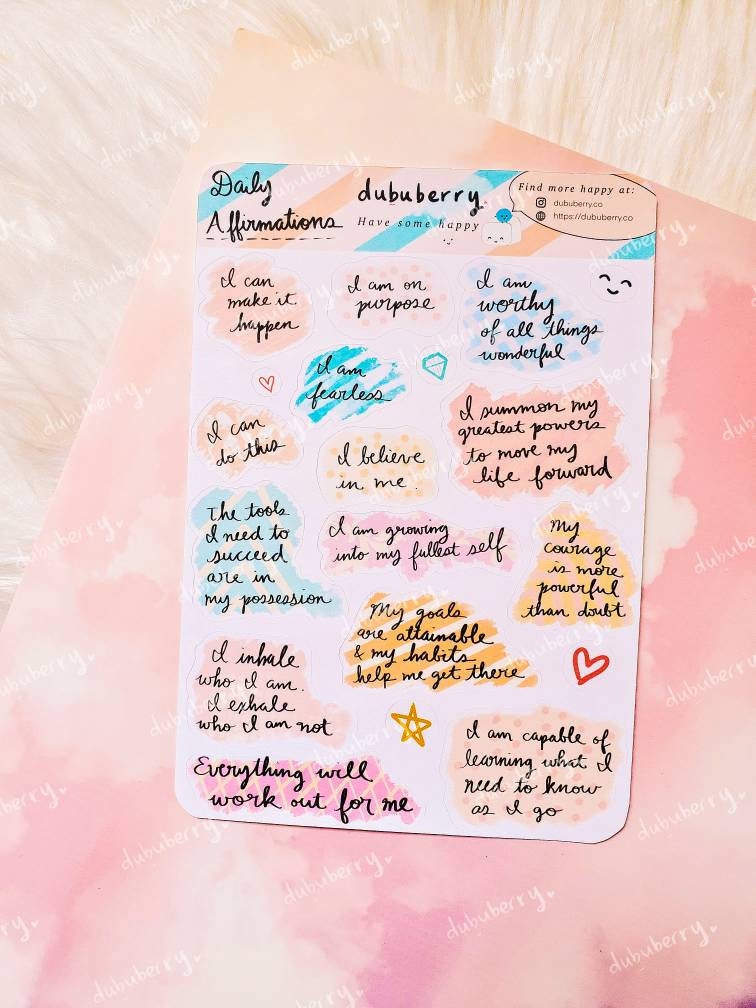 Daily
Affirmations
dububerry
Have some happy
Find more happy at:
dububerry.co
https://dububerry.co
I can
make it
happen
I am on
purpose
I am
worthy
of all things
wonderful
I am
fearless
I can
do this
I believe
in me.
I summon my
greatest powers
to move my
life forward
The tools
I need to
succeed
are in
my possession
I am growing
into my fullest self
My
courage
is more
powerful
than doubt
My goals
are attainable
& my habits
help me get there
I inhale
who I am.
I exhale
who I am not
I am capable of
learning what I
need to know
as I go
Everything will
work out for me
dububerry